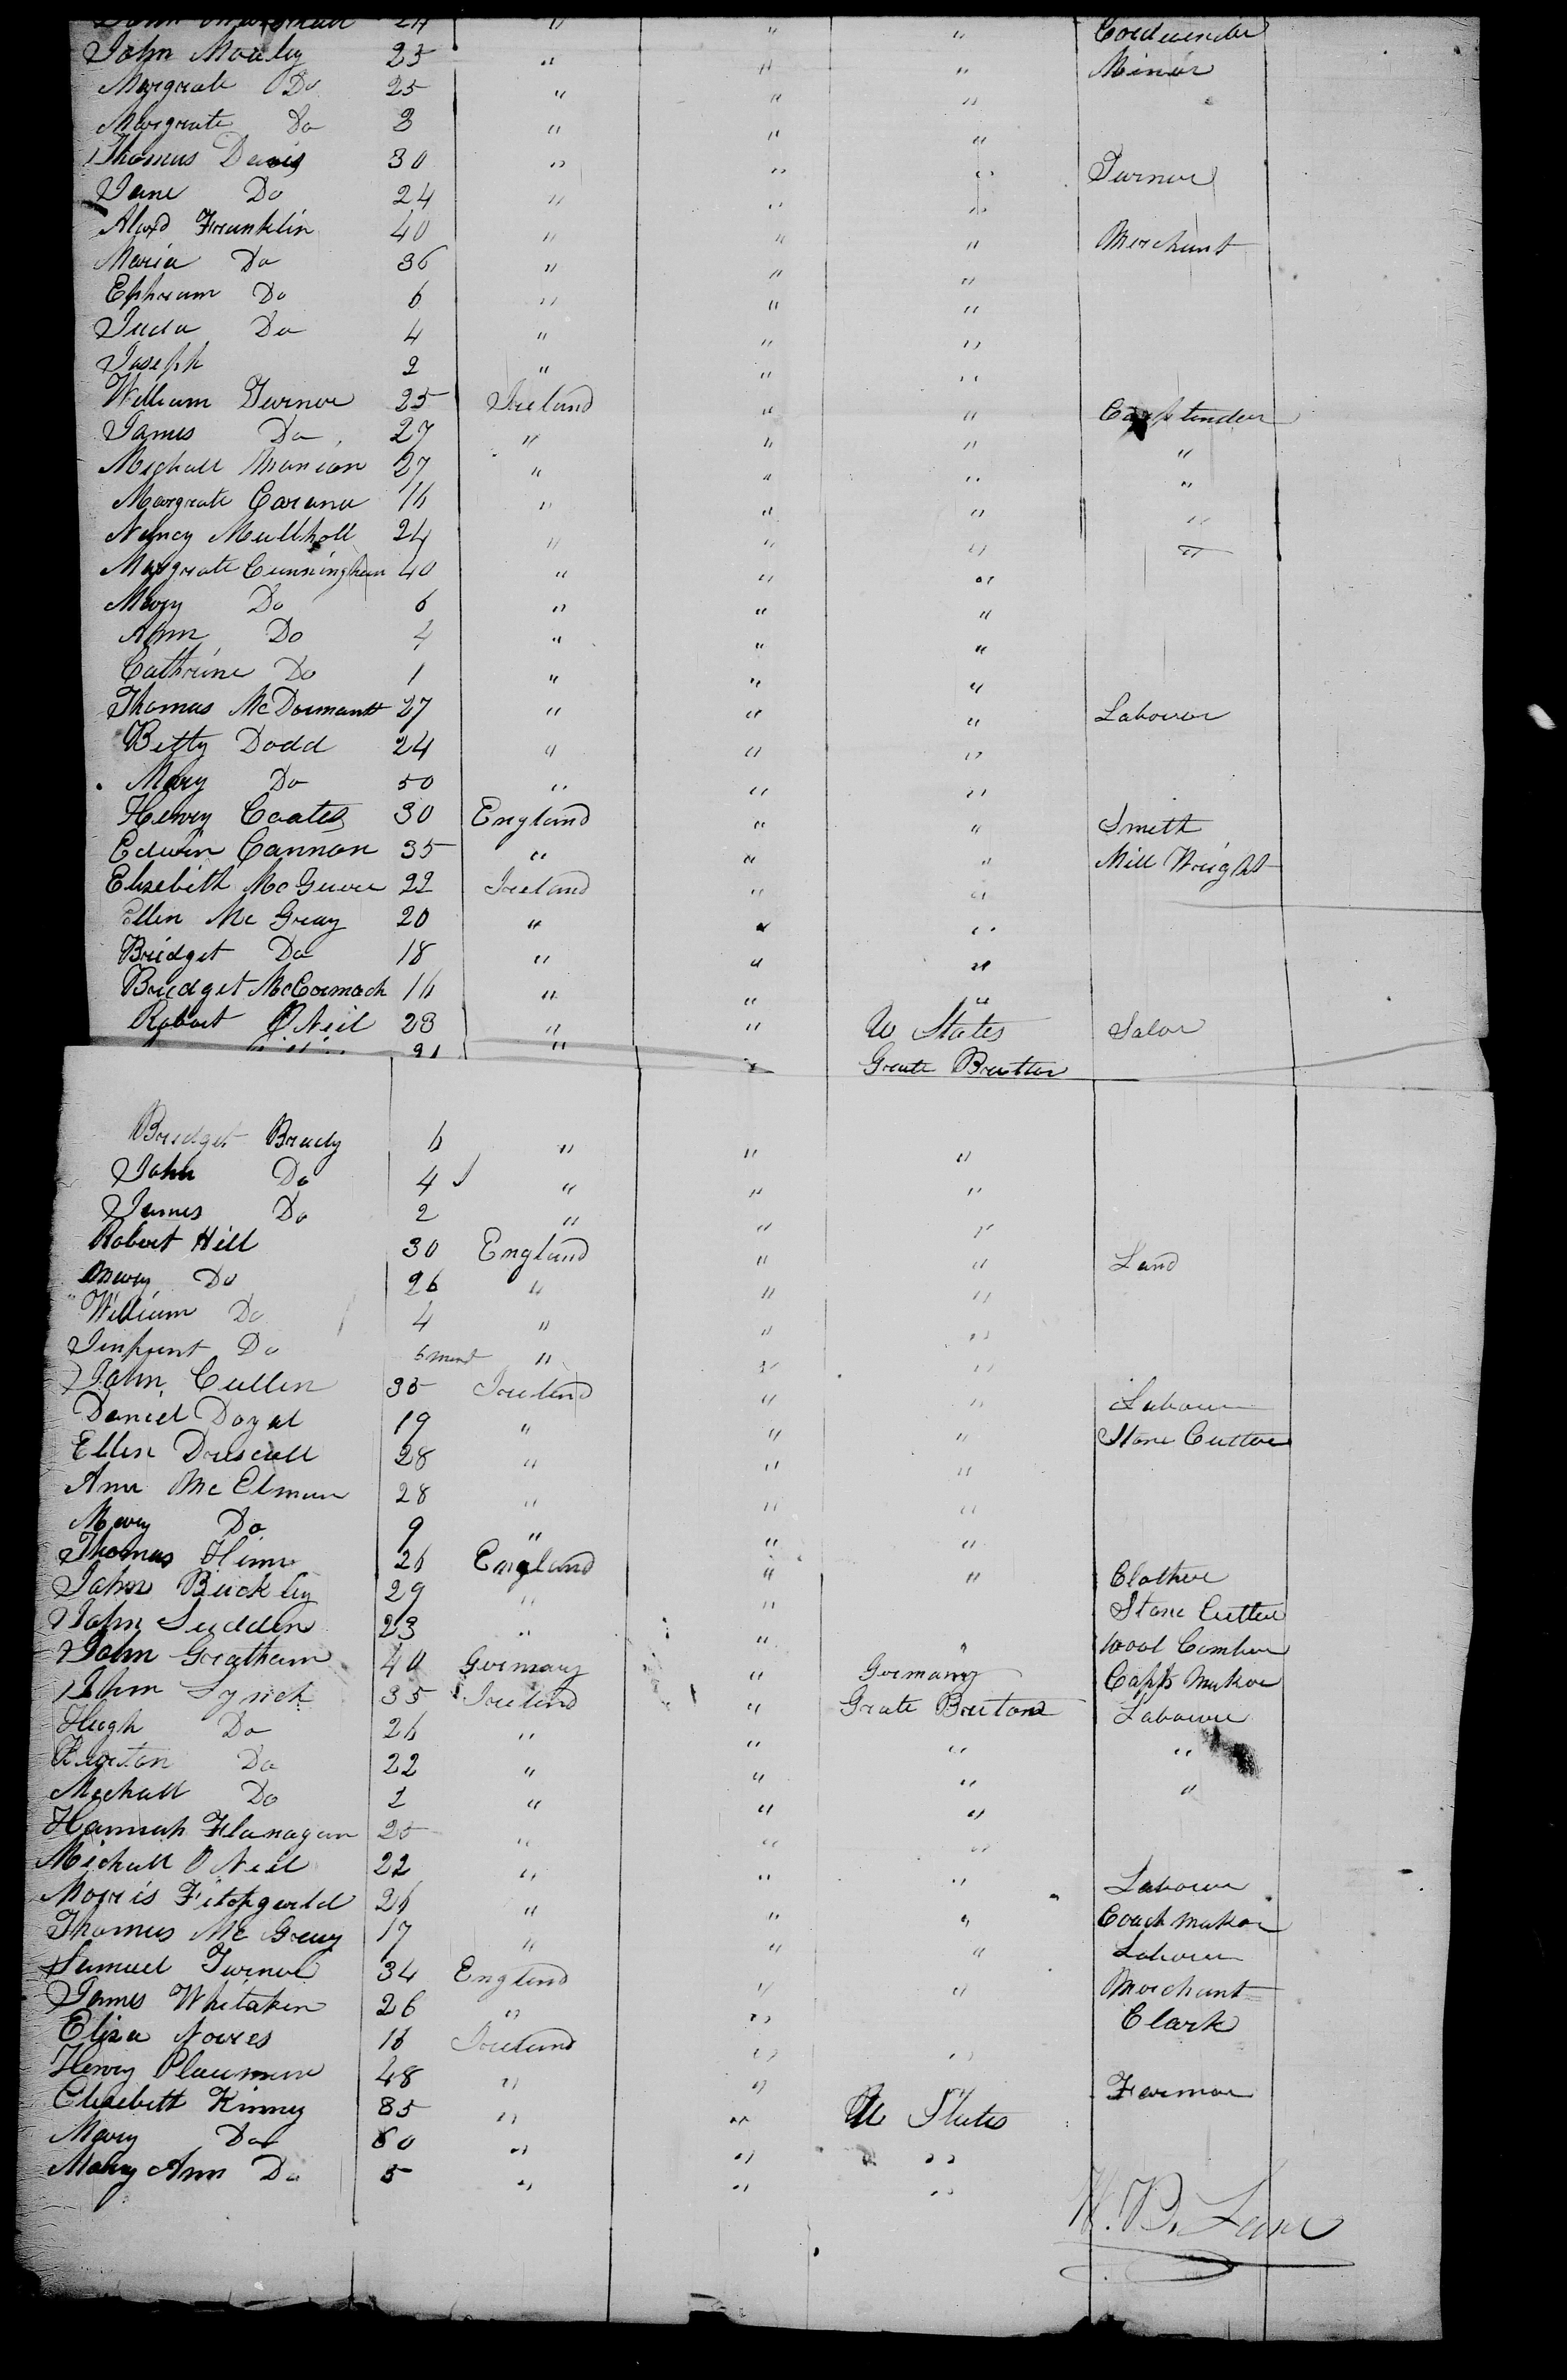 24 " " " Cordwinder
John Morley 25 " " " Minor
Margreate Do 25 " " "
Margreate Do 3 " " "
Thomas Davis 30 " " " Turnor
Jane Do 24 " " "
Alexd Franklin 40 " " " Merchant
Maria Do 36 " " "
Ephraum Do 6 " " "
Juda Do 4 " " "
Joseph 2 " " "
William Turnor 25 Ireland " "
James Do 27 " " " "
Michall Manion 27 " " " "
Margreate 16 " " " "
Nancy Mullholl 24 " " " "
Margreate Cunningham 40 " " "
Mary Do 6 " " "
Ann Do 4 " " "
Cathrine Do 1 " " "
Thomas McDormantt 27 " " " Labouror
Betty Dodd 24 " " "
Mary Do 50 " " "
Henry Coates 30 England " " Smith
Edwin Cannon 35 " " " Mill Wright
Elizebith McGuire 22 Ireland " "
Ellin Mc Gray 20 " " "
Bridget Do 18 " " "
Bridget McCormack 16 " " "
Robart O Neil 28 " " U States Salor
21 " Greate
Bridget Brady 6 " " "
John Do 4 " " "
James Do 2 " " "
Robert Hill 30 England " " Land
Mary Do 26 " " "
William Do 4 " " "
Do 6 " " "
John Cullin 35 Ireland " " Labour
Daniel Doyal 19 " " " Stone Cuttor
Ellin Driscull 28 " " "
Ann Mc Elmun 28 " " "
Mary Do 9 " " "
Thomas 26 England " " Clother
John Buckley 29 " " Stone Cutter
John Sudden 23 " " " Wool Comber
John Greatham 40 Germany " Germany Capp Makor
John Lynch 35 Ireland " Grate Breton Labourer
Hugh Do 26 " " " "
Do 22 " " " "
Michall Do 2 " " "
Hannah Flanagan 20 " " "
Michall O Neil 22 " " " Labourer
Morris Fitzgerald 26 " " " Coach Makor
Thomas Mc Gray 17 " " " Labourer
Samuel Turnor 34 England " " Merchant
James Whitaken 26 " " Clark
Eliza Nowes 16 Ireland " "
Henry 48 " " Farmor
Elizebitt Kinney 85 " " U States
Mary Do 60 " " "
Mary Ann Do 5 " " "